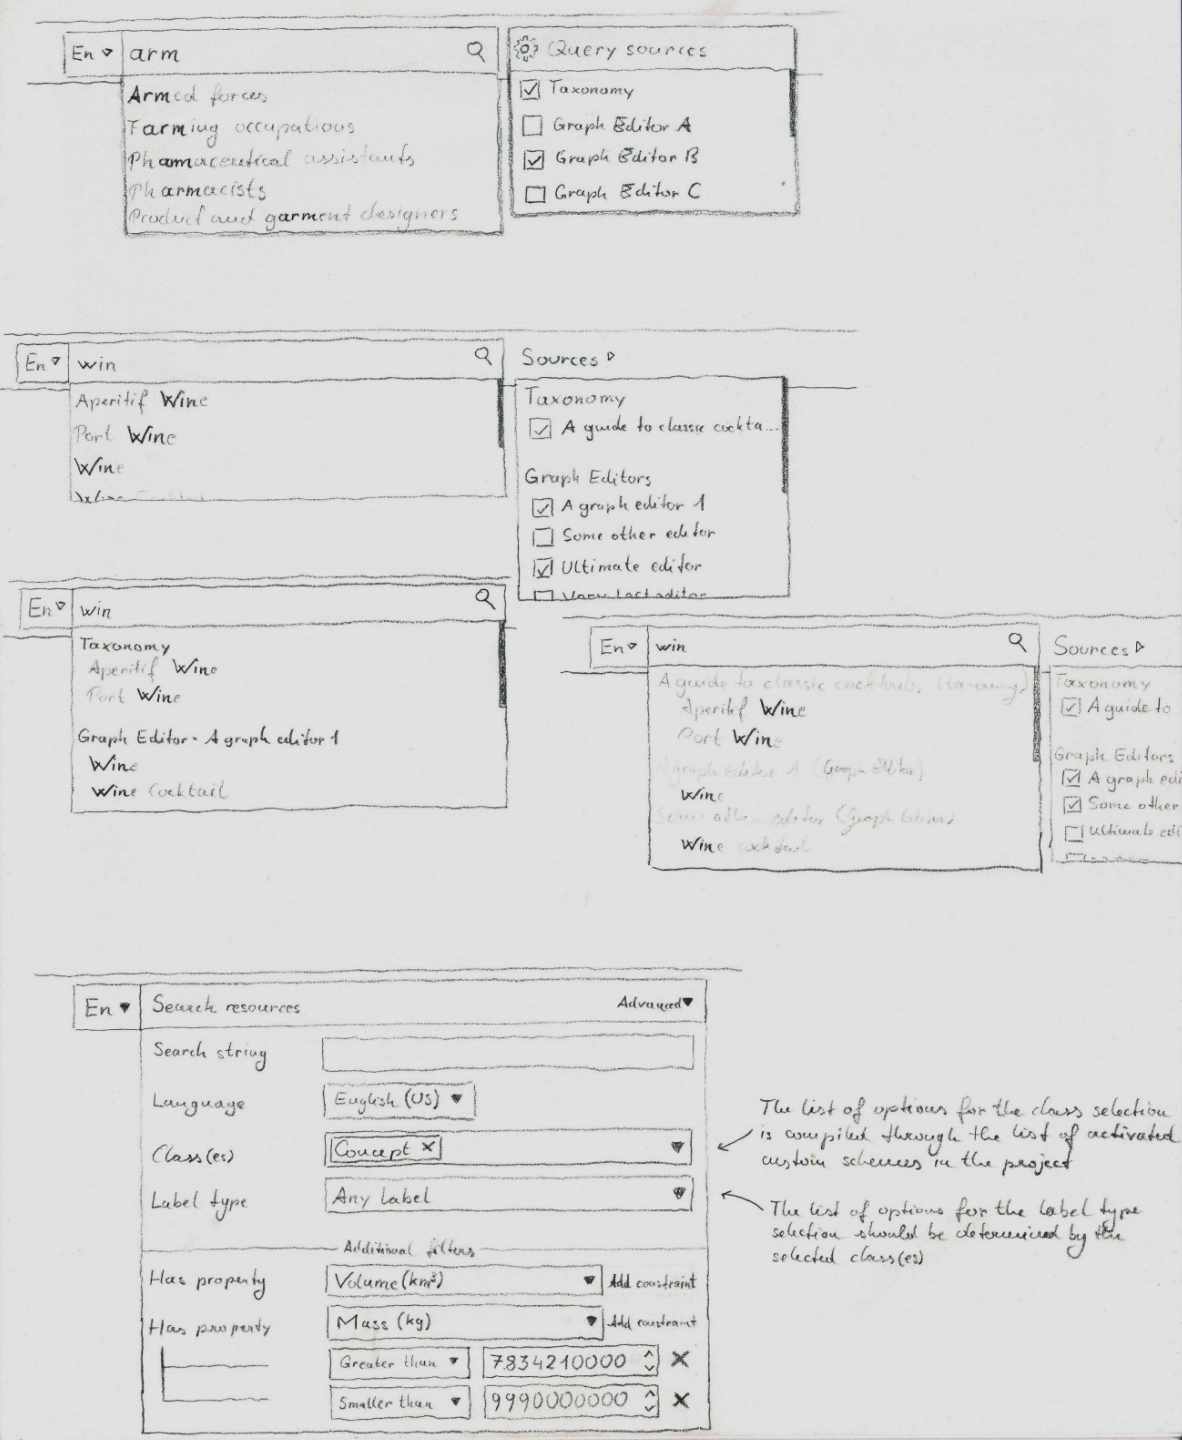 En arm
Armed forces
Farming occupations
Phamaceutical assistants
Pharmacists
Product and garment designers
Query sources
Taxonomy
Graph Editor A
Graph Editor B
Graph Editor C
En win
Aperitif Wine
Port Wine
Wine
Sources
Taxonomy
A guide to classic cockta...
Graph Editors
A graph editor 1
Some other editor
Ultimate editor
Very last editor
En win
Taxonomy
Aperitif Wine
Port Wine
Graph Editor - A graph editor 1
Wine
Wine Cocktail
En win
A guide to classic cocktails (taxonomy)
Aperitif Wine
Port Wine
A graph editor 1 (Graph Editor)
Wine
Some other editor (Graph Editor)
Wine cocktail
Sources
Taxonomy
A guide to
Graph Editors
A graph edi
Some other
Ultimate edi
En Search resources Advanced
Search string
Language English (US)
Class(es) Concept ×
Label type Any Label
Additional filters
Has property Volume (km³) Add constraint
Has property Mass (kg) Add constraint
Greater than 7834210000 ×
Smaller than 9990000000 ×
The list of options for the class selection
is compiled through the list of activated
custom schemes in the project
The list of options for the label type
selection should be determined by the
selected class(es)